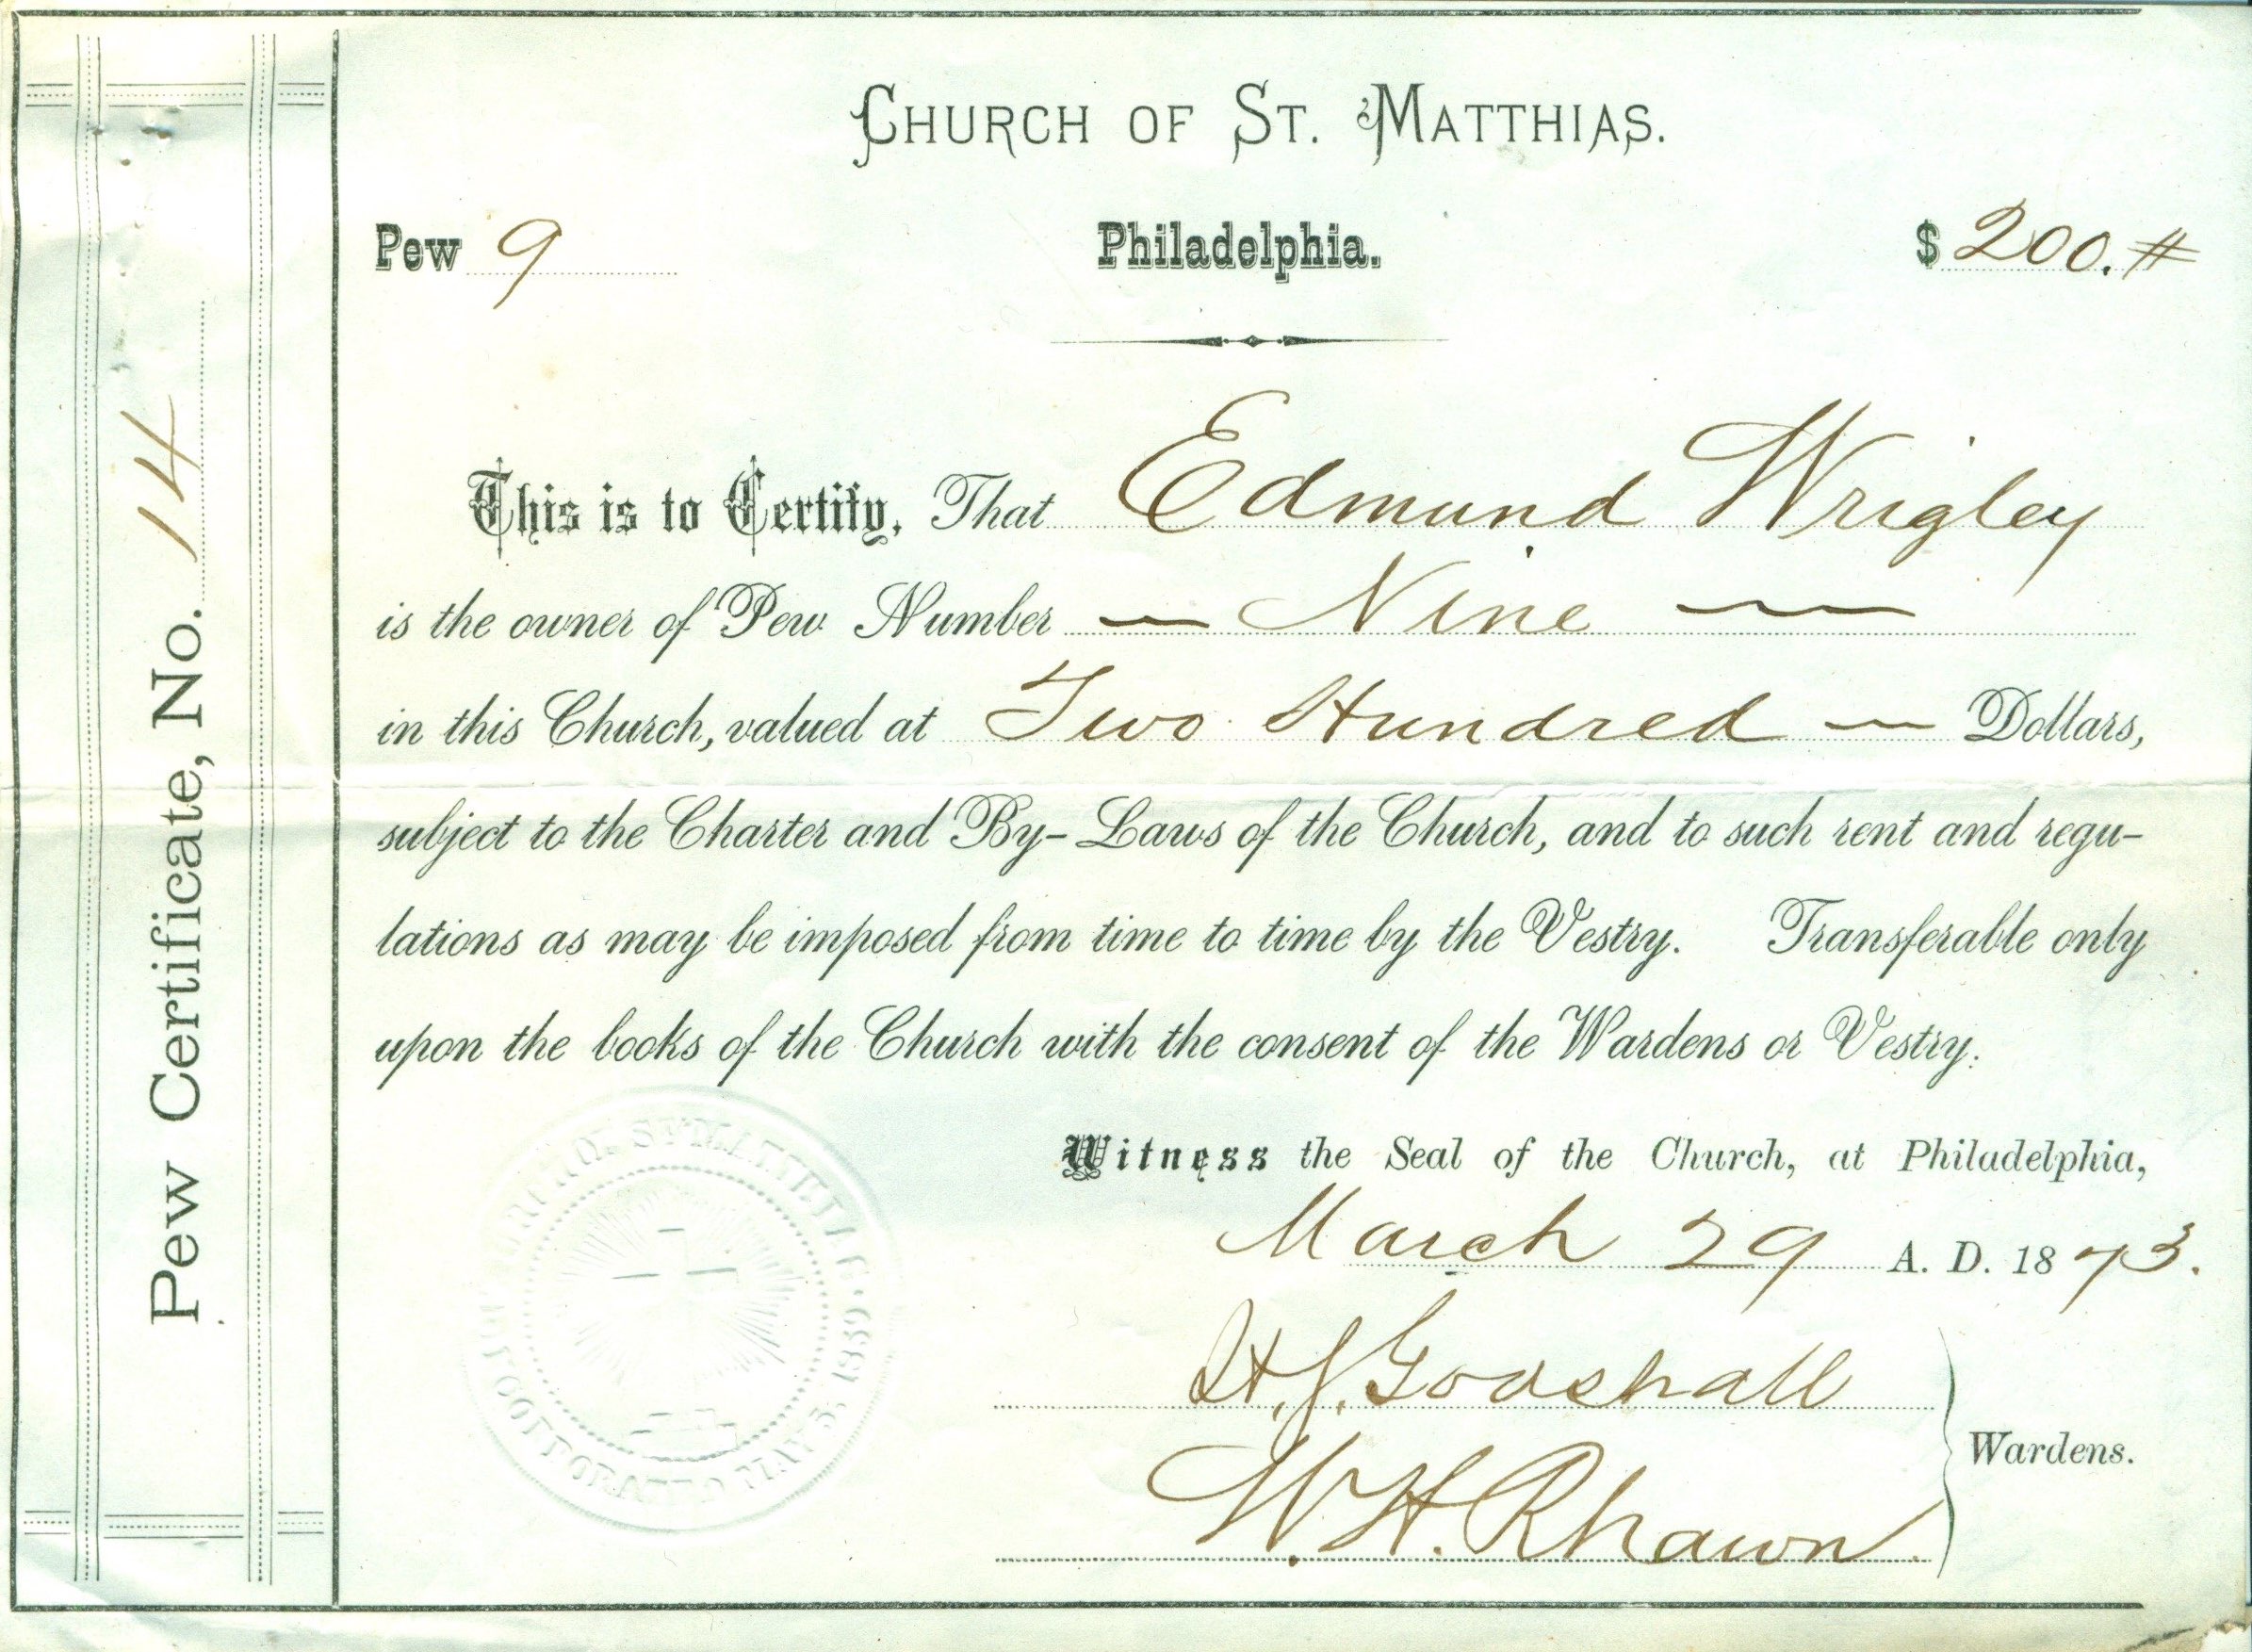 Pew Certificate, No. 14
CHURCH OF ST. MATTHIAS.
Pew 9 Philadelphia. $ 200.#
This is to Certify, That Edmund Wrigley
is the owner of Pew Number — Nine —
in this Church, valued at Two Hundred — Dollars,
subject to the Charter and By-Laws of the Church, and to such rent and regu-
lations as may be imposed from time to time by the Vestry. Transferable only
upon the books of the Church with the consent of the Wardens or Vestry.
Witness the Seal of the Church, at Philadelphia,
March 29 A. D. 1873.
H. J. Godshall
W. H. Rhawn
Wardens.
ST MATTHIAS
INCORPORATED MAY 5, 1859